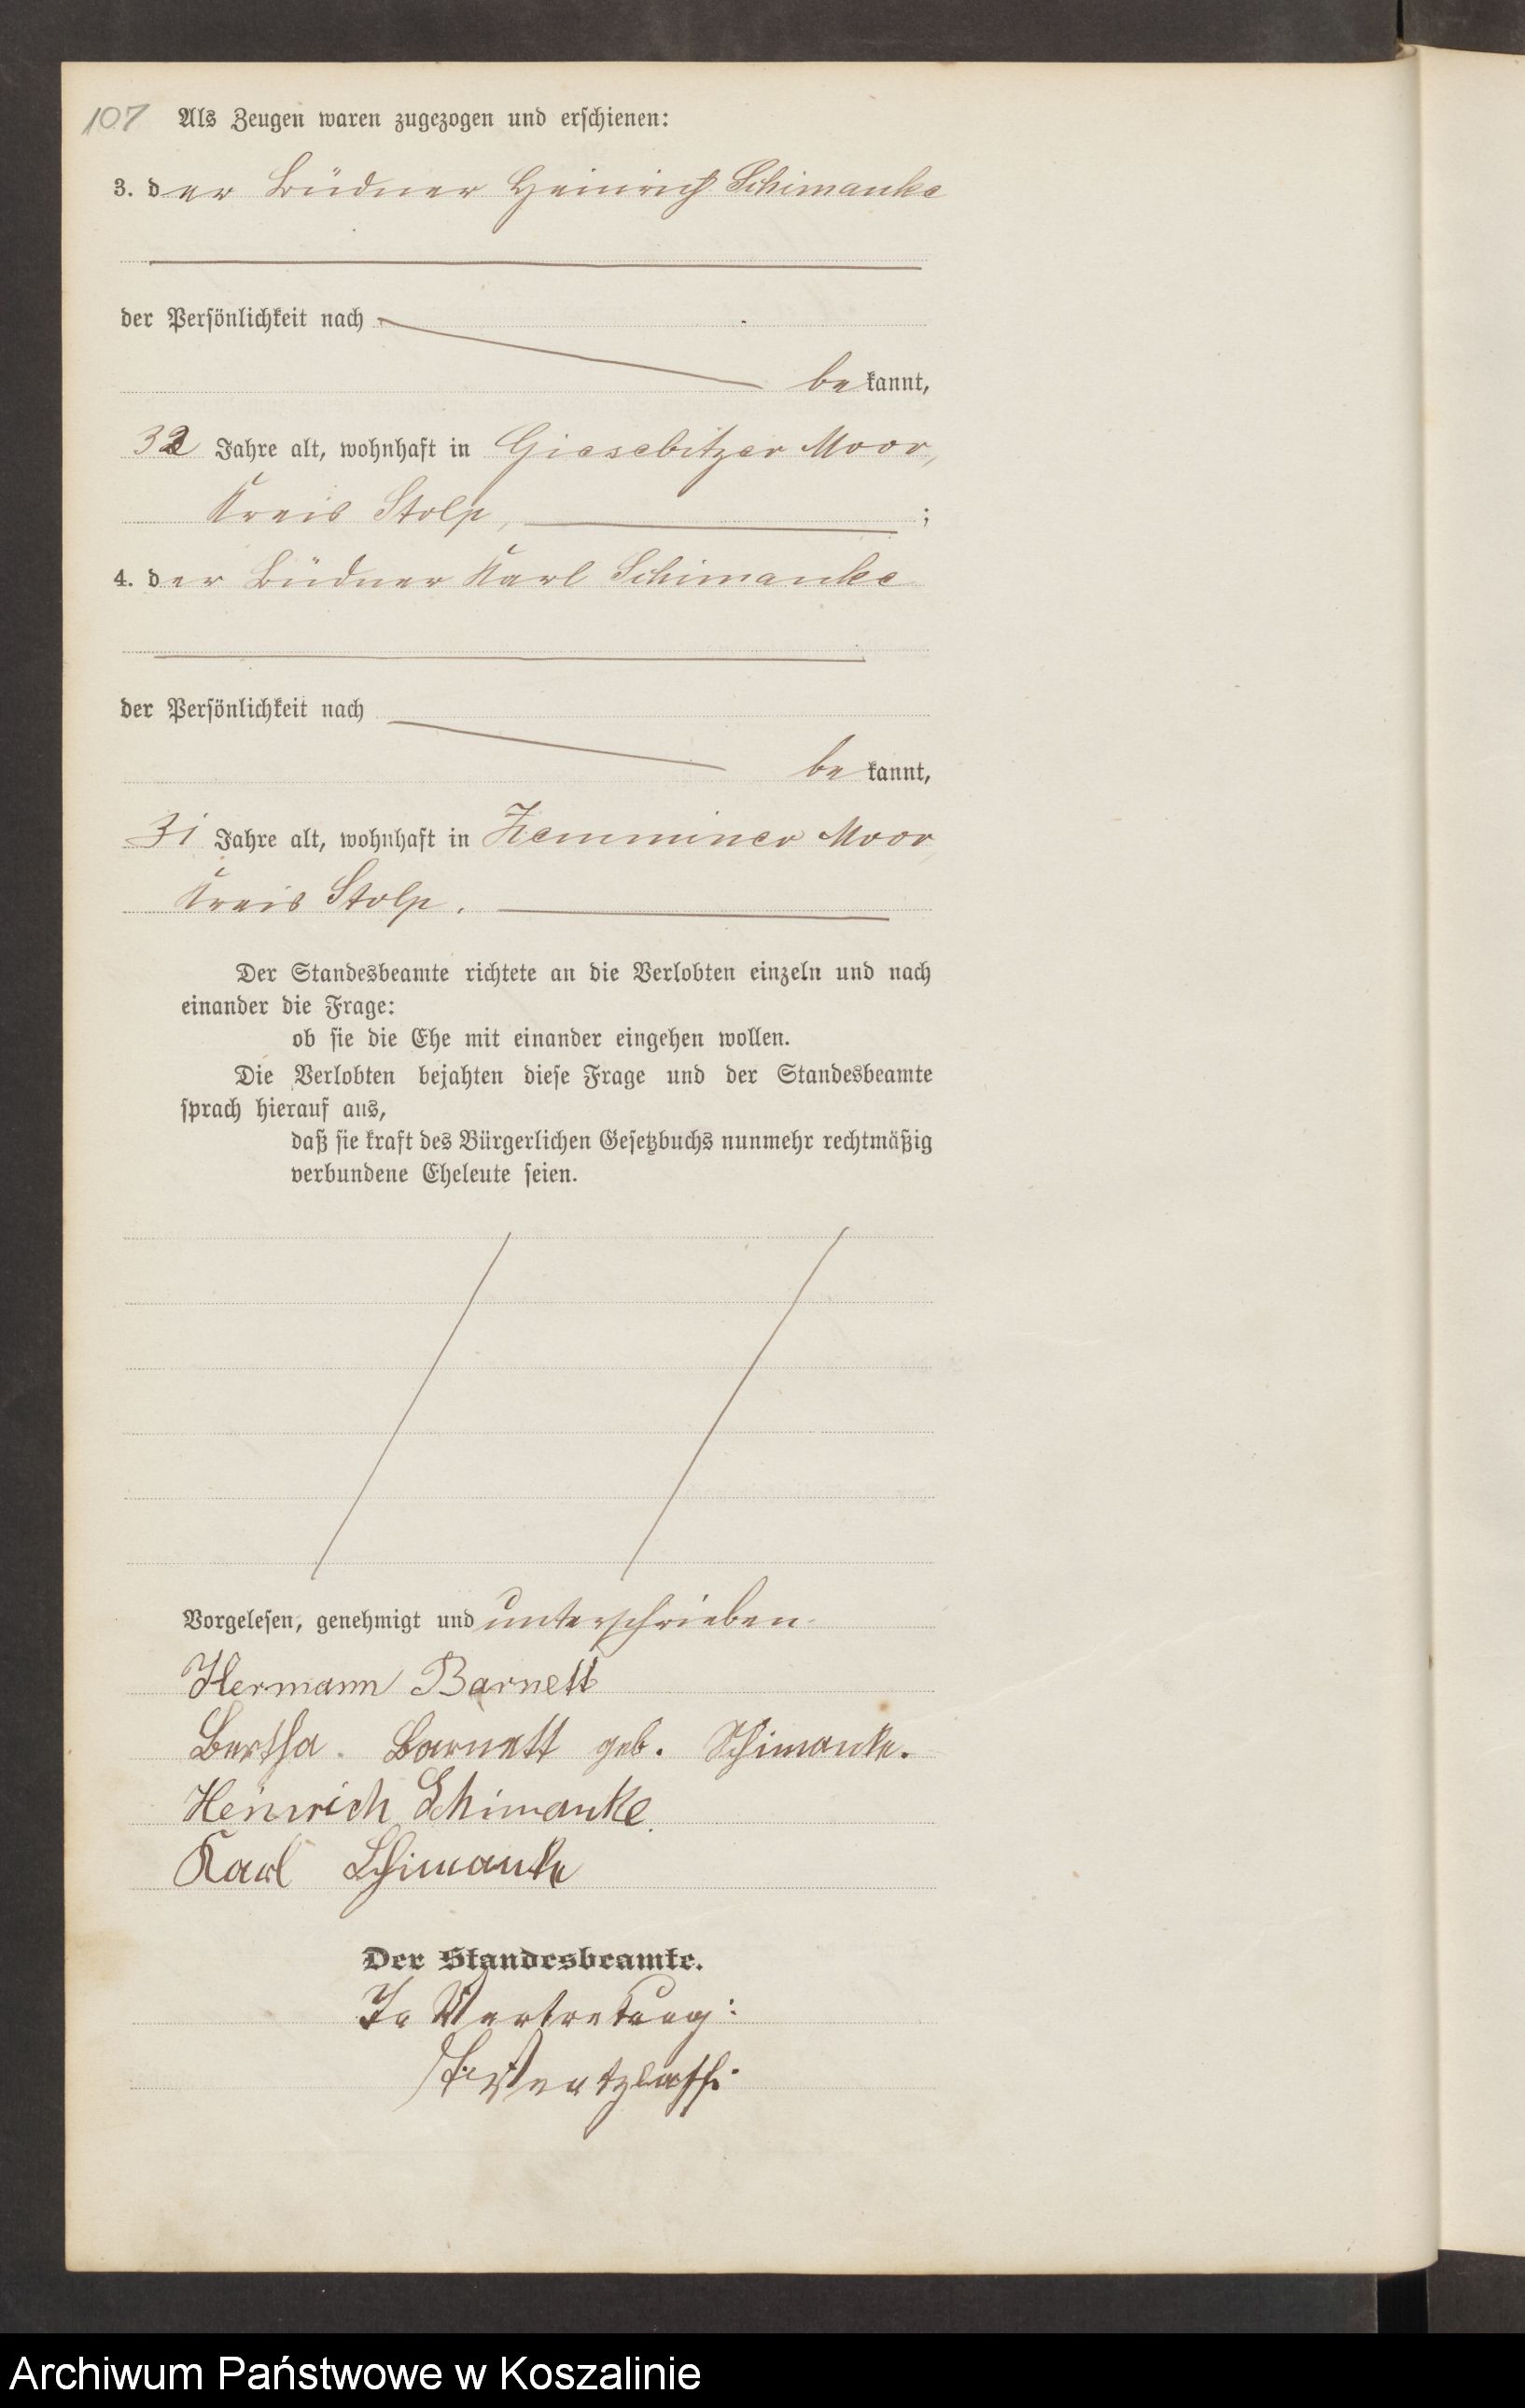 107 Als Zeugen waren zugezogen und erschienen:
3. der Büdner Heinrich Schimanke
der Persönlichkeit nach
bekannt,
32 Jahre alt, wohnhaft in Giesebitzer Moor,
Kreis Stolp, ;
4. der Büdner Karl Schimanke
der Persönlichkeit nach
bekannt,
31 Jahre alt, wohnhaft in Zemminer Moor,
Kreis Stolp.
Der Standesbeamte richtete an die Verlobten einzeln und nach
einander die Frage:
ob sie die Ehe mit einander eingehen wollen.
Die Verlobten bejahten diese Frage und der Standesbeamte
sprach hierauf aus,
daß sie kraft des Bürgerlichen Gesetzbuchs nunmehr rechtmäßig
verbundene Eheleute seien.
Vorgelesen, genehmigt und unterschrieben
Hermann Barnett
Bertha Barnett geb. Schimanke.
Heinrich Schimanke.
Karl Schimanke
Der Standesbeamte.
In Vertretung:
Archiwum Państwowe w Koszalinie